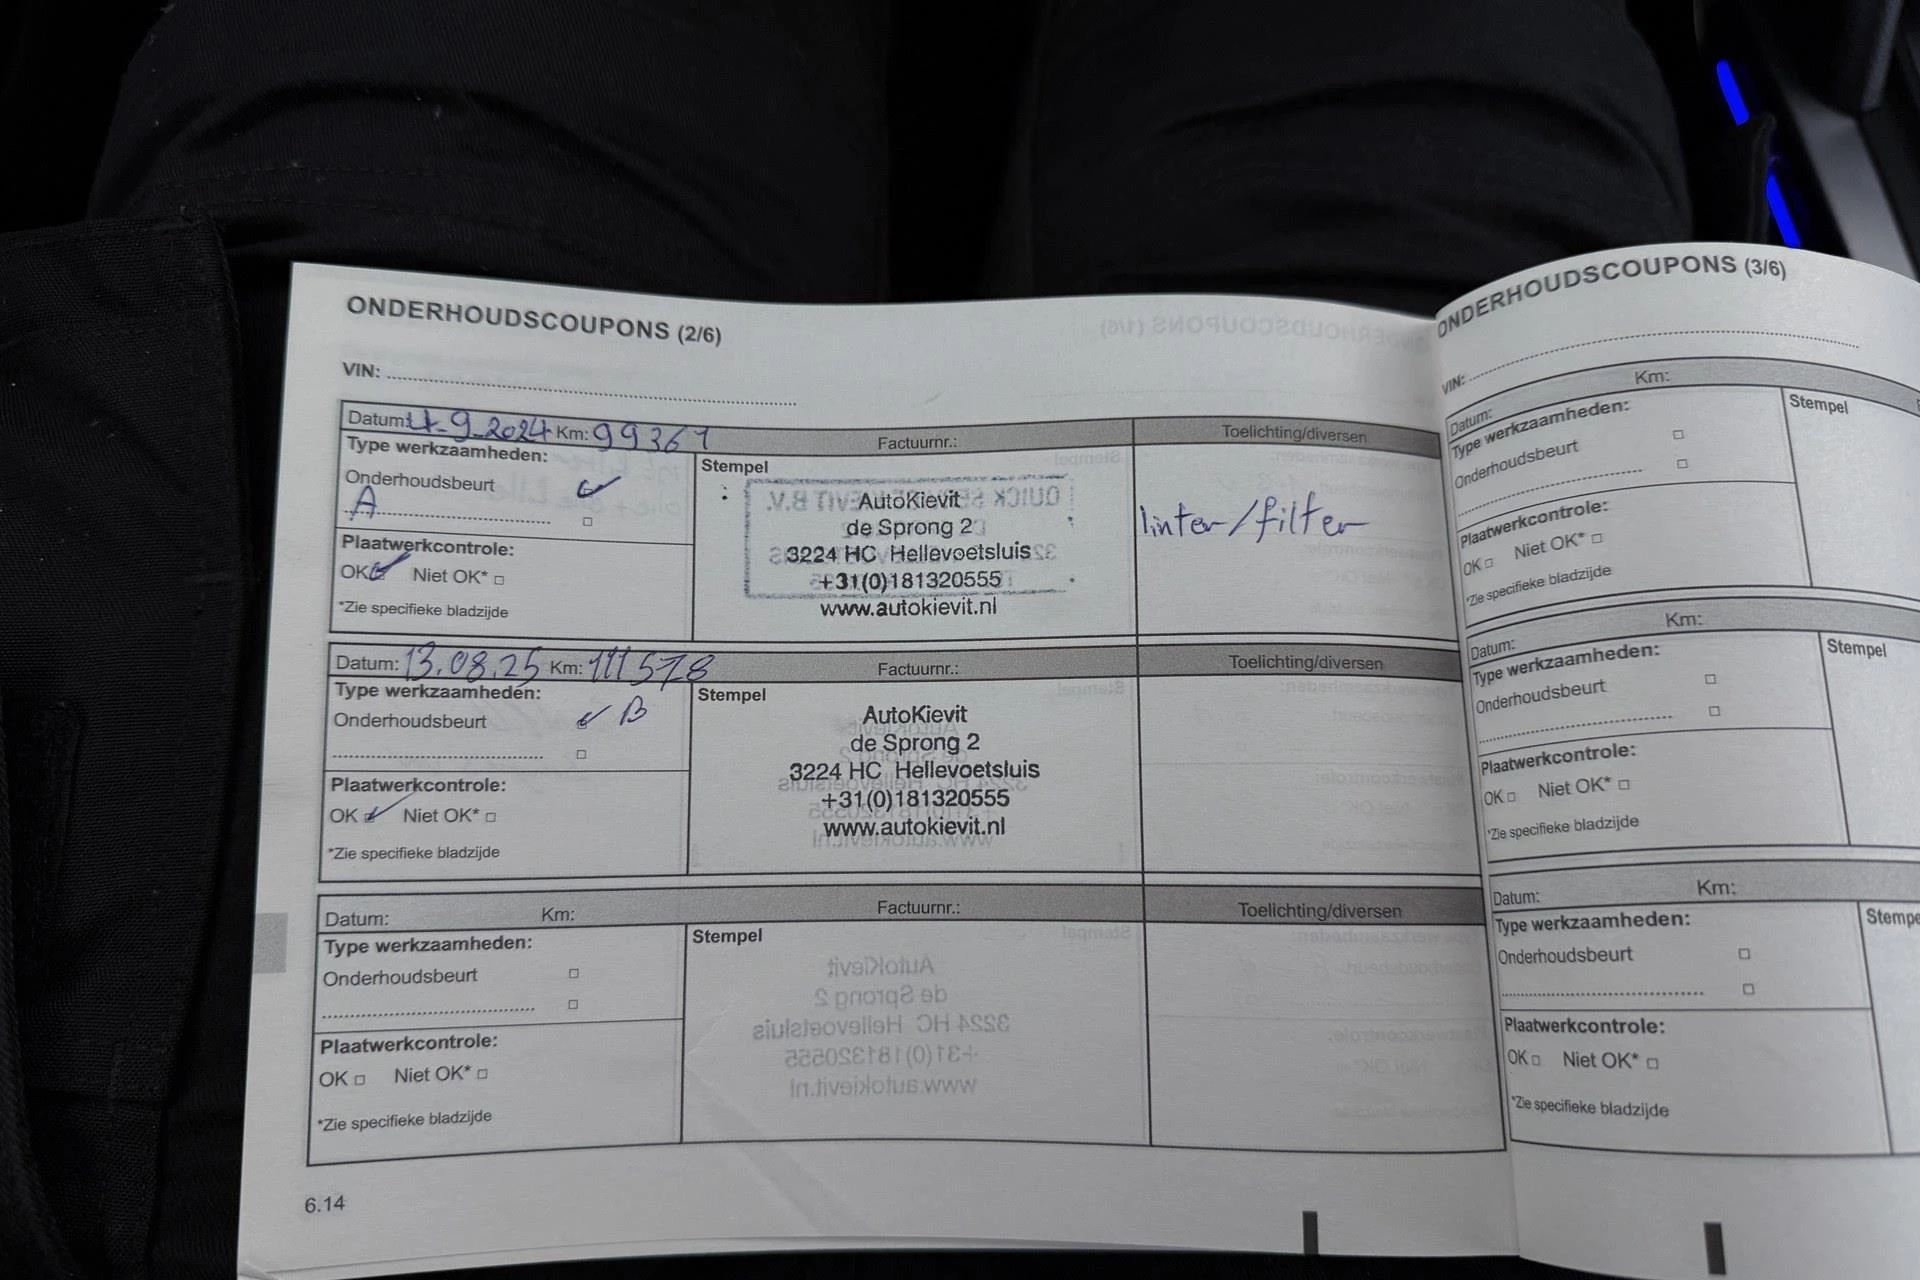 ONDERHOUDSCOUPONS (2/6)
VIN:
Datum: 4-9-2024 Km: 99361 Factuurnr.: Toelichting/diversen
Type werkzaamheden:
Onderhoudsbeurt
A
Plaatwerkcontrole:
OK Niet OK*
*Zie specifieke bladzijde
Stempel
AutoKievit
de Sprong 2
3224 HC Hellevoetsluis
+31(0)181320555
www.autokievit.nl
linter/filter
Datum: 13.08.25 Km: 111578 Factuurnr.: Toelichting/diversen
Type werkzaamheden:
Onderhoudsbeurt B
Plaatwerkcontrole:
OK Niet OK*
*Zie specifieke bladzijde
Stempel
AutoKievit
de Sprong 2
3224 HC Hellevoetsluis
+31(0)181320555
www.autokievit.nl
Datum: Km: Factuurnr.: Toelichting/diversen
Type werkzaamheden:
Onderhoudsbeurt
Plaatwerkcontrole:
OK Niet OK*
*Zie specifieke bladzijde
Stempel
6.14
ONDERHOUDSCOUPONS (3/6)
VIN:
Datum: Km:
Type werkzaamheden:
Onderhoudsbeurt
Plaatwerkcontrole:
OK Niet OK*
*Zie specifieke bladzijde
Stempel
Datum: Km:
Type werkzaamheden:
Onderhoudsbeurt
Plaatwerkcontrole:
OK Niet OK*
*Zie specifieke bladzijde
Stempel
Datum: Km:
Type werkzaamheden:
Onderhoudsbeurt
Plaatwerkcontrole:
OK Niet OK*
*Zie specifieke bladzijde
Stempe